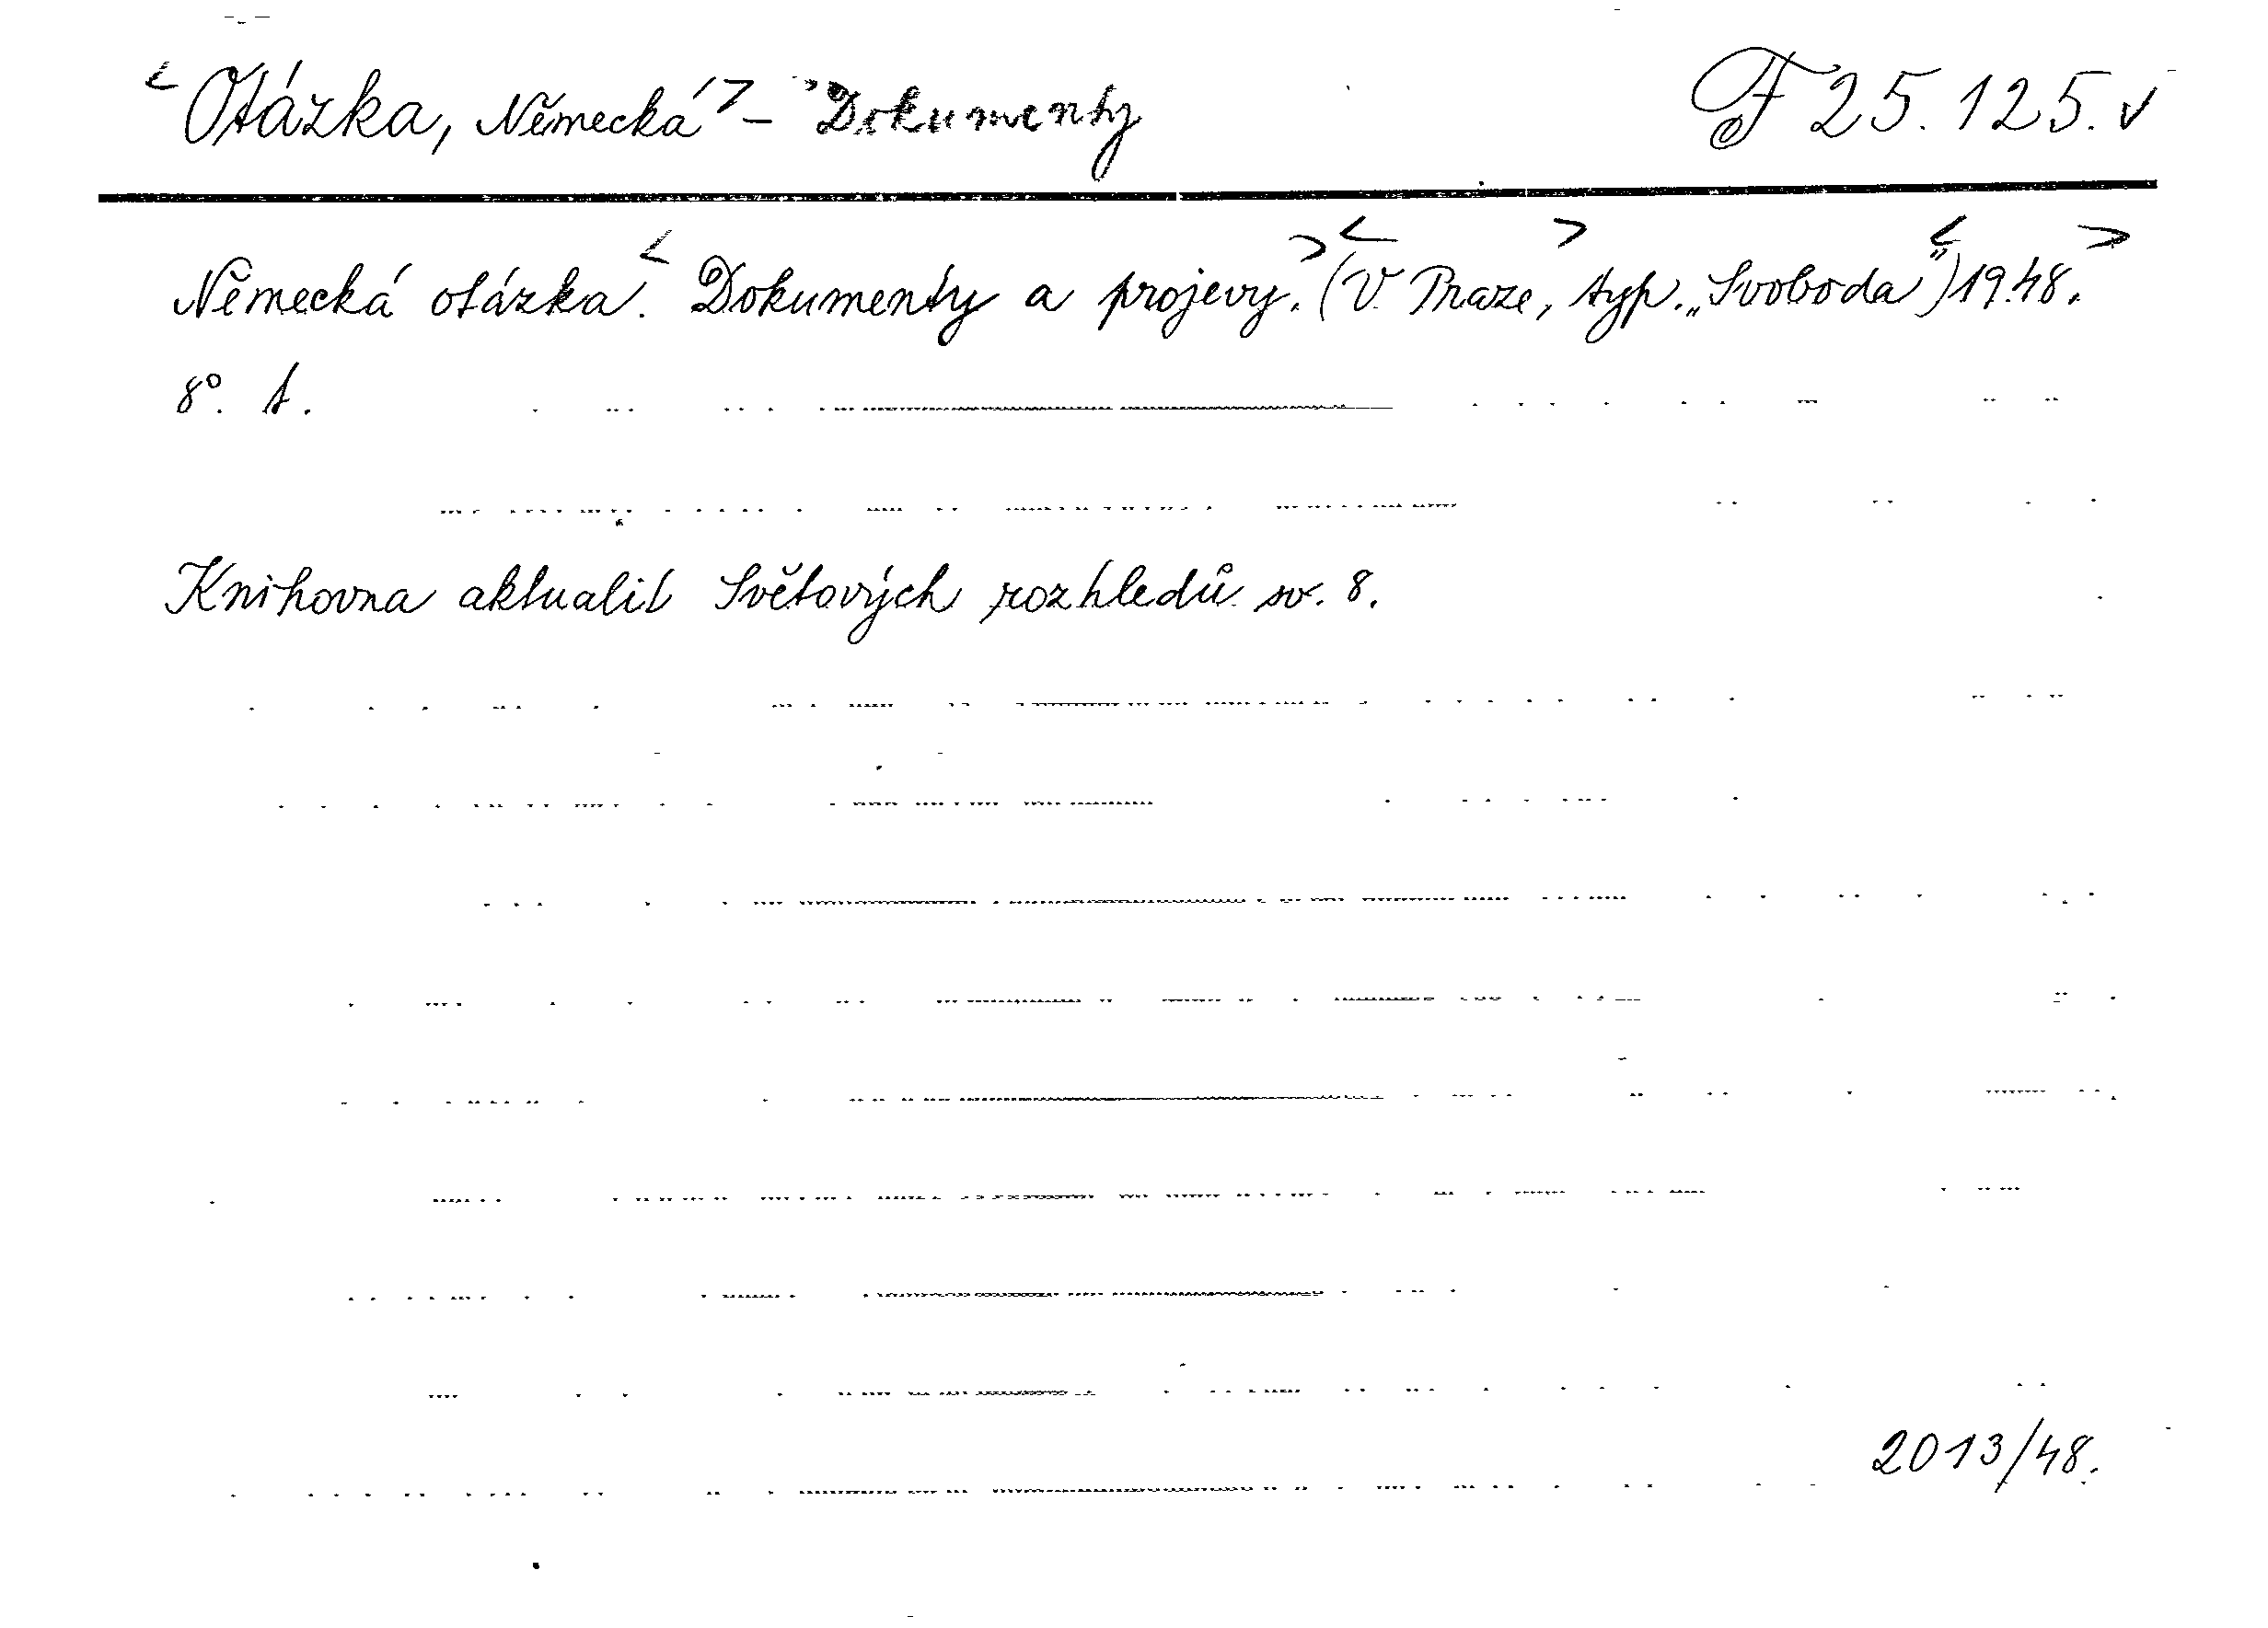 <Otázka, Německá> - Dokumenty F 25.125. v
Německá otázka. < Dokumenty a projevy. > < (V Praze, > typ. „Svoboda“) < 1948. >
8°. t.
Knihovna aktualit Světových rozhledů sv. 8.
2013/48.